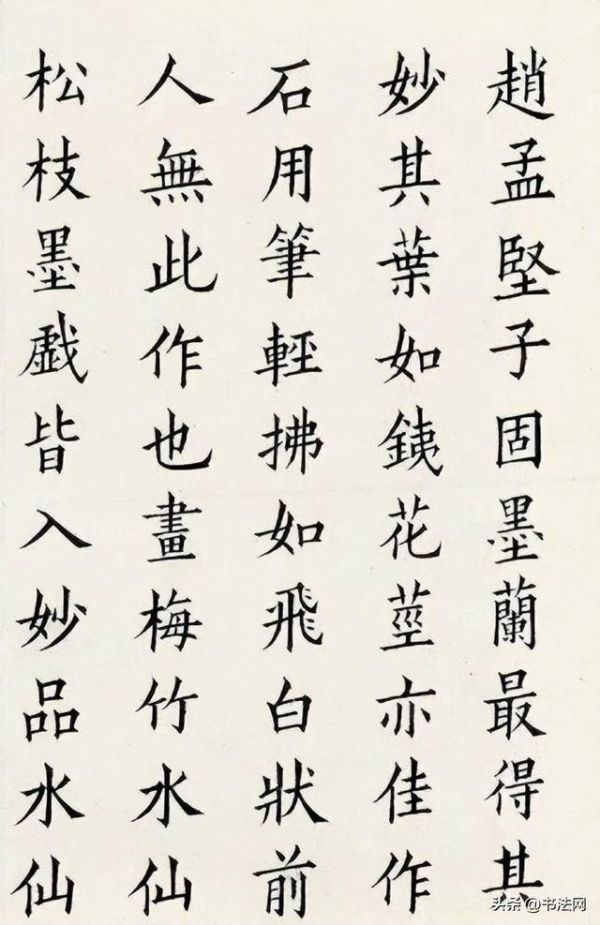 趙孟堅子固墨蘭最得其
妙其葉如銕花莖亦佳作
石用筆輕拂如飛白狀前
人無此作也畫梅竹水仙
松枝墨戲皆入妙品水仙
头条 @书法网